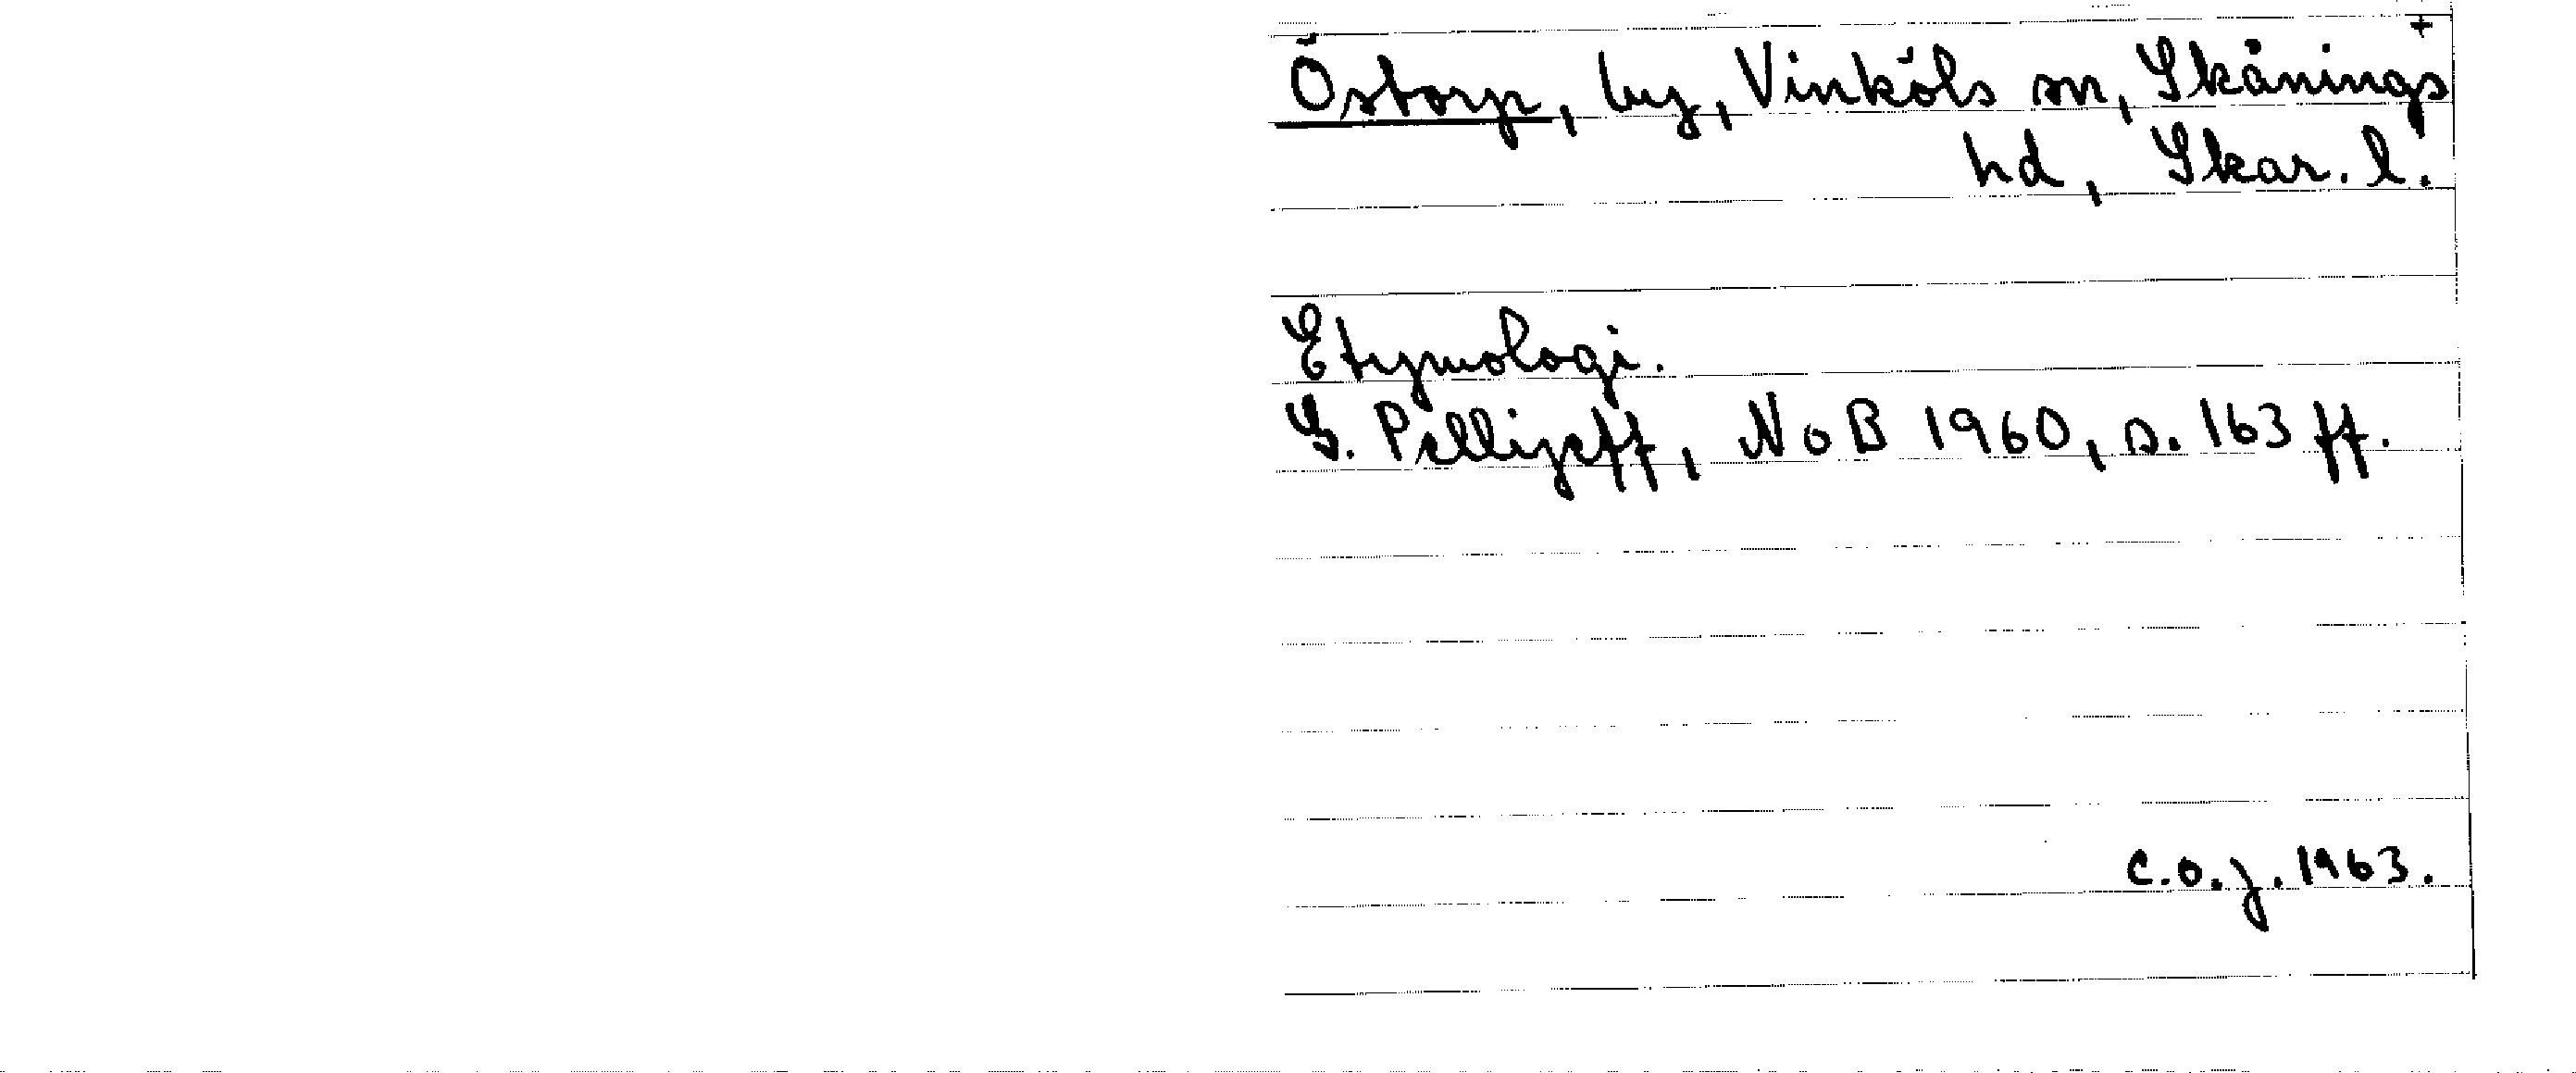 +
Östorp, by, Vinköls sn, Skånings
hd, Skar. l.
Etymologi.
G. Pellijeff, NoB 1960, s. 163 ff.
C.O.J. 1963.